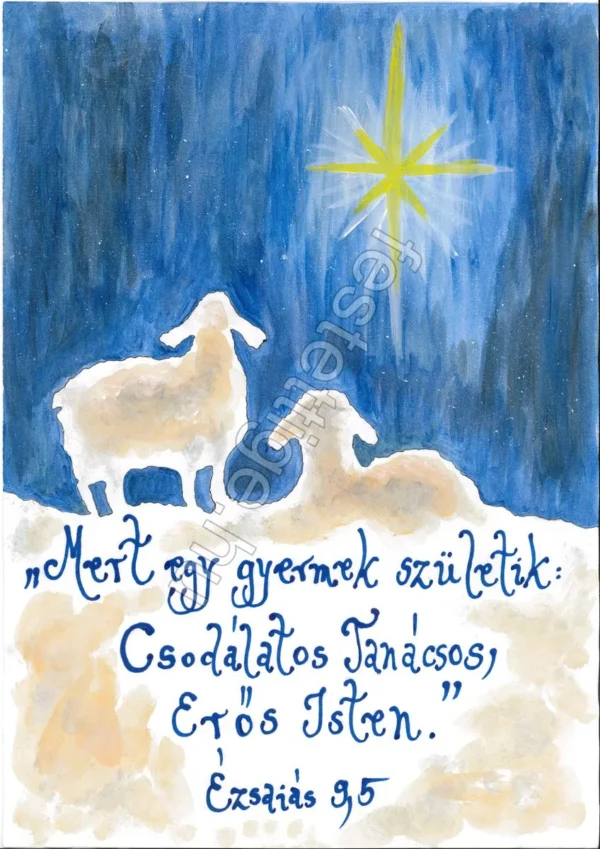 „Mert egy gyermek születik:
Csodálatos Tanácsos,
Erős Isten.”
Ézsaiás 9,5
festettige.hu